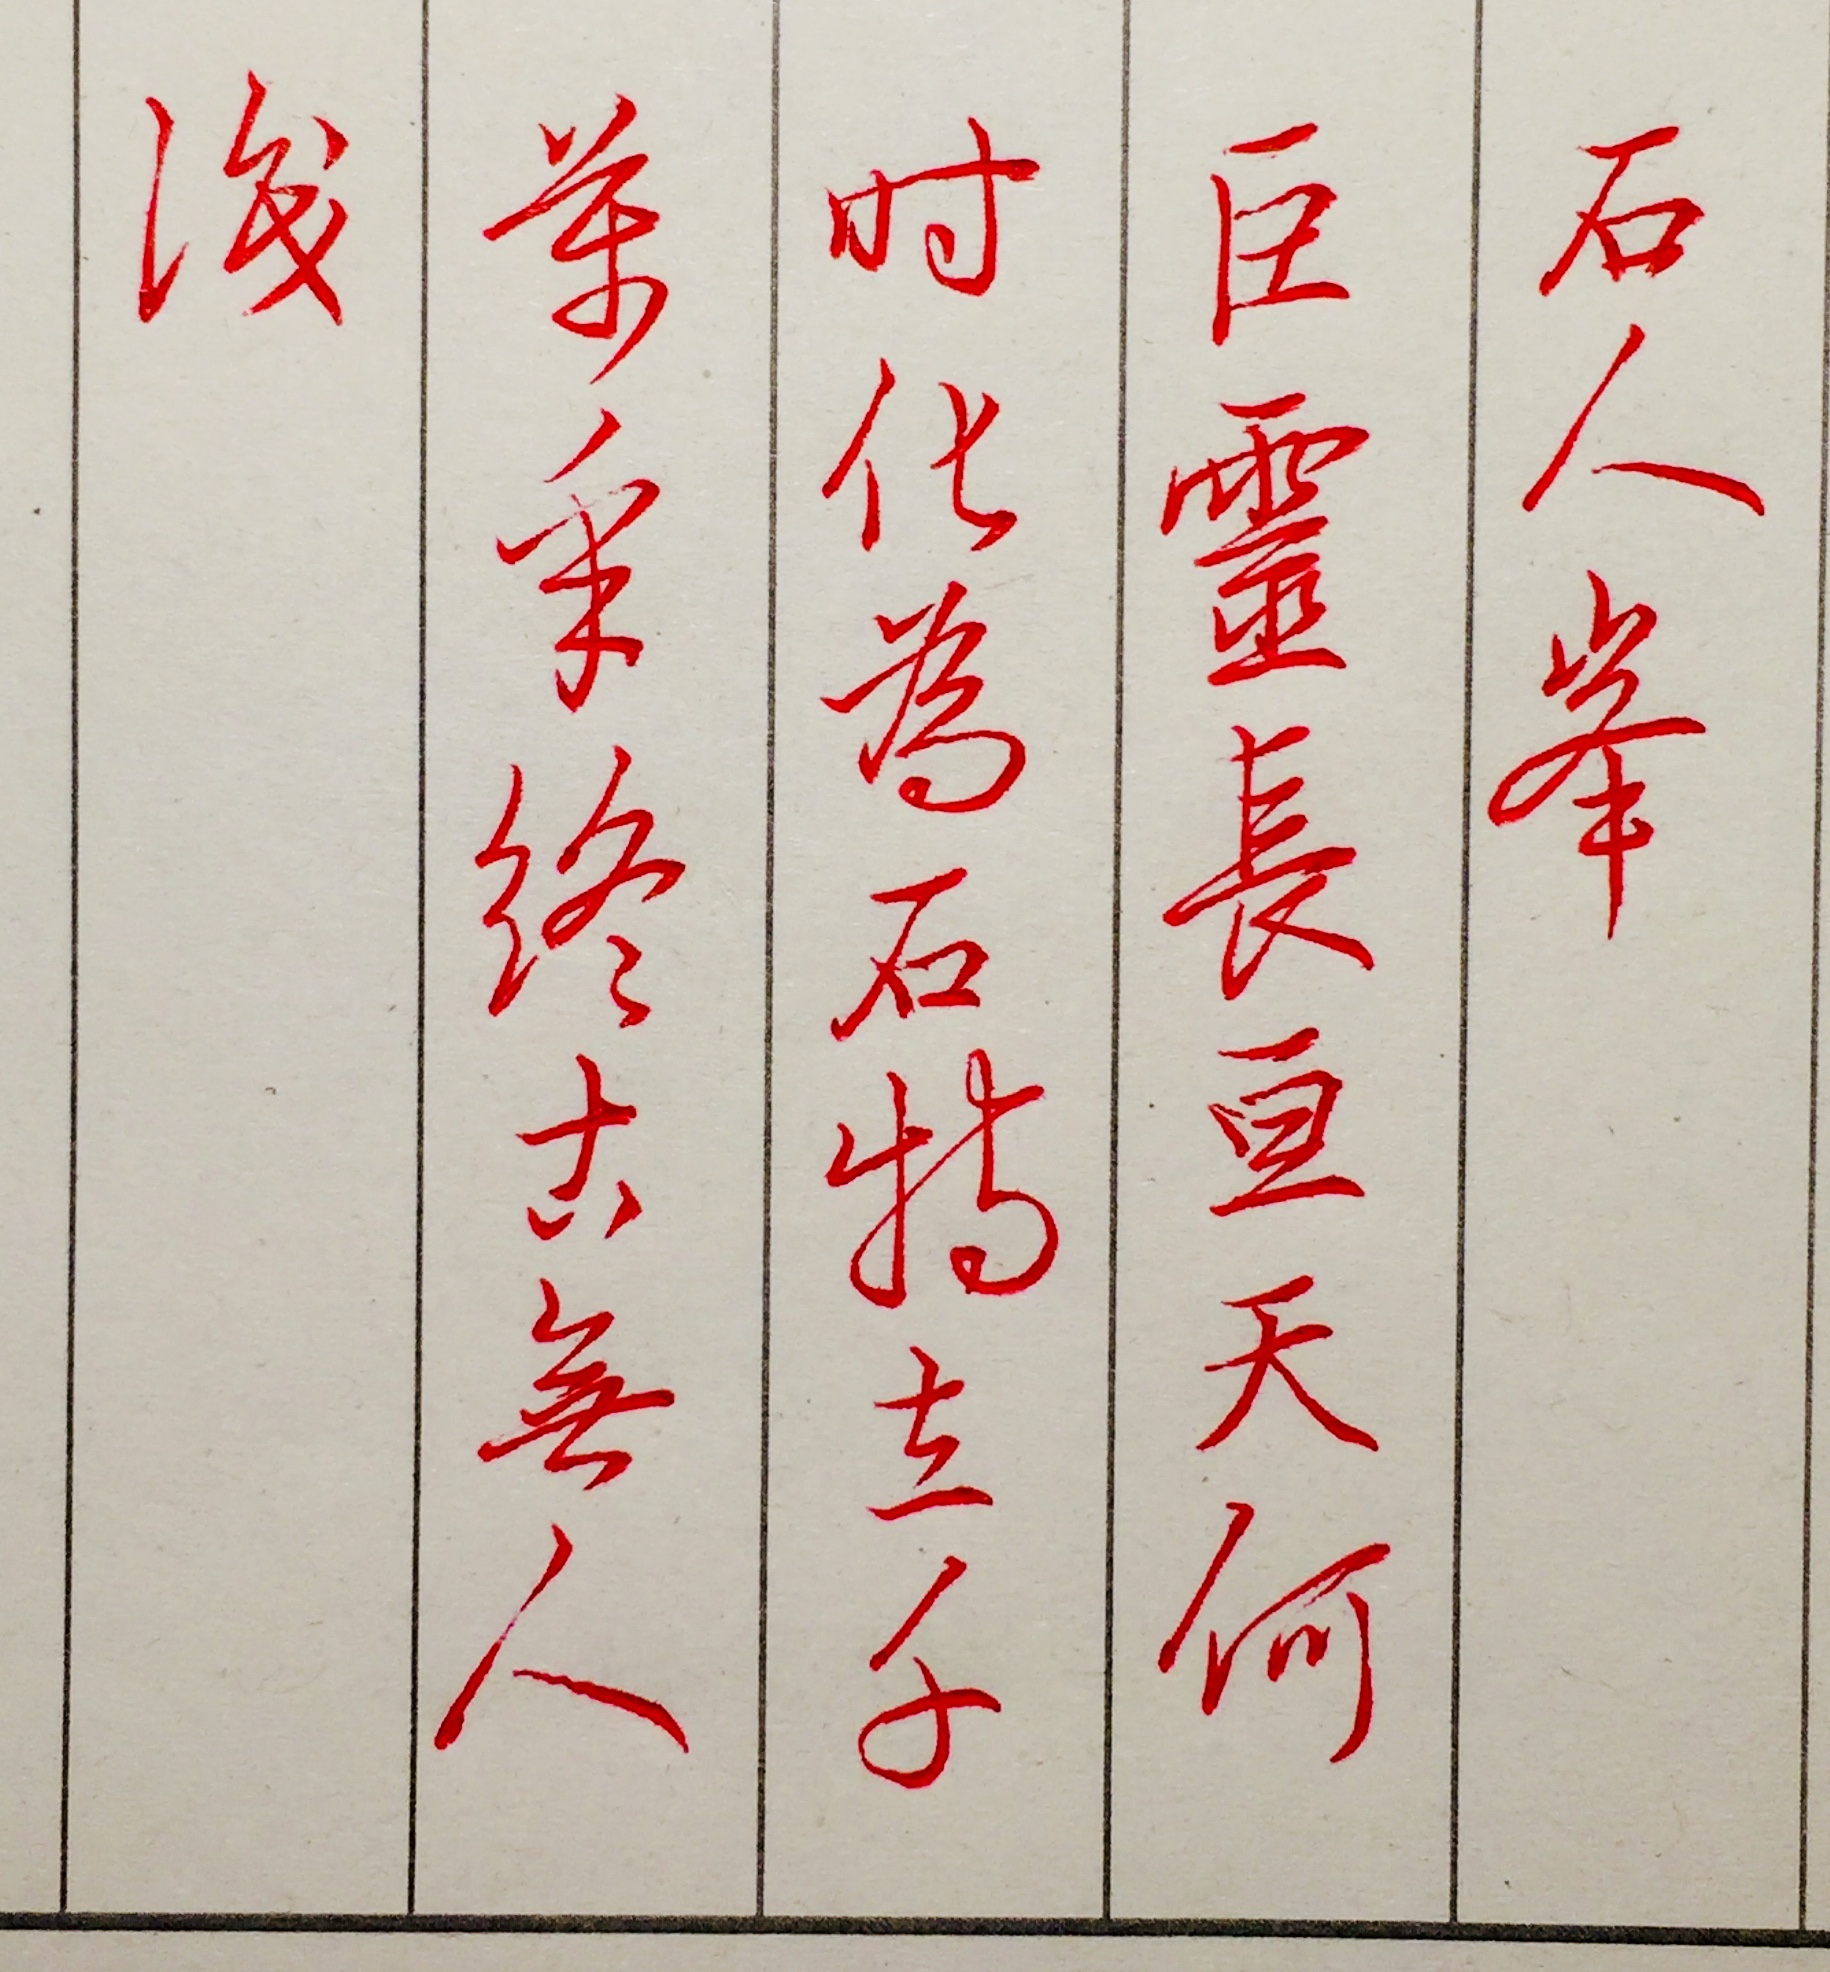 石人峯
巨靈長亘天何
时化為石特立千
萬年終古無人
識